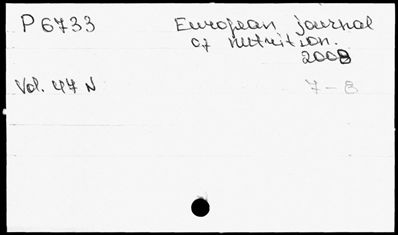 P 6733 European journal
of nutrition.
2008
Vol. 47 N 7-8